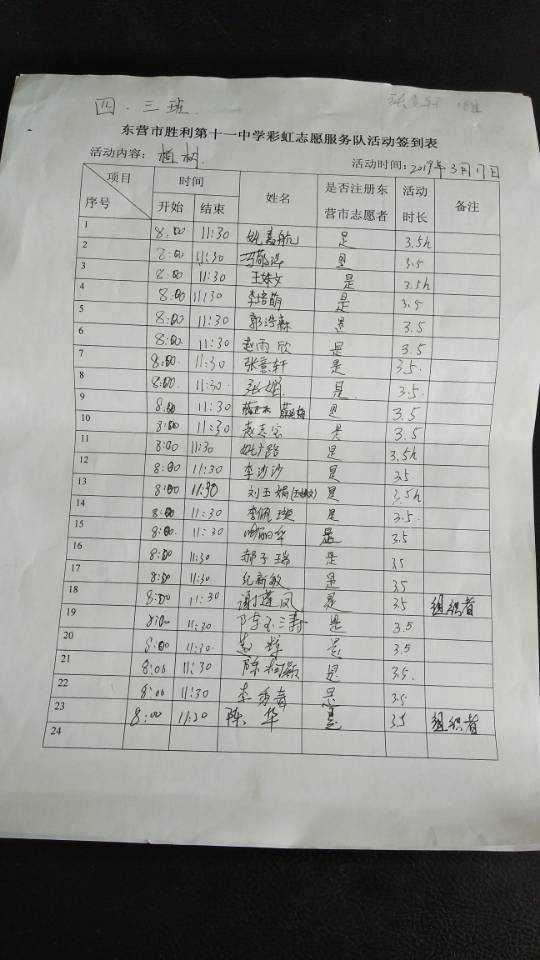 四.三班
东营市胜利第十一中学彩虹志愿服务队活动签到表
活动内容: 植树. 活动时间: 2019年3月17日
项目 序号 时间 开始 结束 姓名 是否注册东营市志愿者 活动时长 备注
1 8:00 11:30 航 是 3.5h
2 8:00 11:30 是 3.5
3 8:00 11:30 王 文 是 3.5h
4 8:00 11:30 李培萌 是 3.5
5 8:00 11:30 郭浩霖 是 3.5
6 8:00 11:30 赵雨欣 是 3.5
7 8:00. 11:30 张意轩 是 3.5.
8 8:00. 11:30. 张 是 3.5.
9 8:00 11:30 是 3.5
10 8:00. 11:30 是 3.5
11 8:00 11:30 是 3.5h
12 8:00 11:30 李沙沙 是 3.5
13 8:00 11:30 刘玉娟 是 3.5h
14 8:00 11:30 李 是 3.5.
15 8:00. 11:30 是 3.5
16 8:00 11:30 郝子瑞 是 3.5
17 8:00 11:30 纪新敏 是 3.5
18 8:00 11:30 谢莲凤 是 3.5 组织者
19 8:00 11:30 是 3.5
20 8:00 11:30 赵辉 是 3.5
21 8:00 11:30 陈柯颖 是 3.5.
22 8:00 11:30 李秀春 是 3.5
23 8:00 11:30 陈华 是 3.5 组织者
24